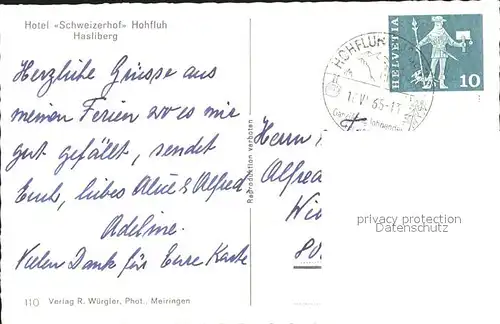 Hotel «Schweizerhof» Hohfluh
Hasliberg
Herzliche Grüsse aus
meinen Ferien wo es mir
gut gefällt, sendet
Euch, liebes Alice & Alfred
Adeline.
Vielen Dank für Eure Karte
110 Verlag R. Würgler, Phot., Meiringen
Reproduktion verboten
HOHFLUH
HELVETIA
10
Herrn
Alfred
privacy protection
Datenschutz